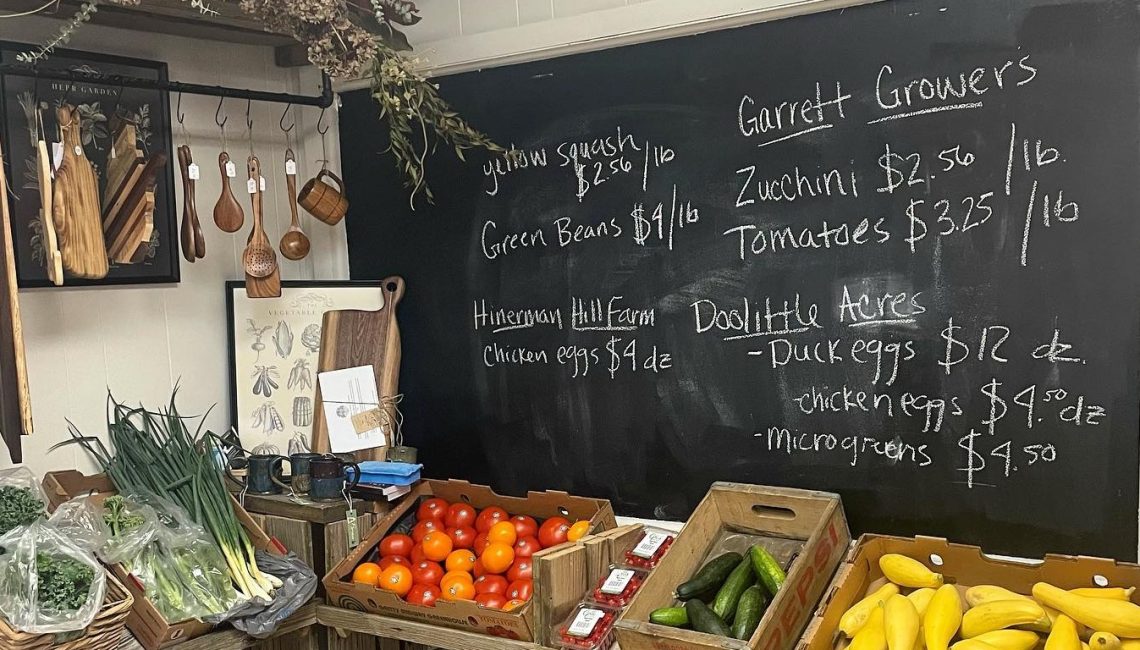 HERB GARDEN
Garrett Growers
yellow squash
$2.56/lb
Green Beans $4/lb
Zucchini $2.56/lb.
Tomatoes $3.25/lb
Hinerman Hill Farm
chicken eggs $4 dz
Doolittle Acres
-Duck eggs $12 dz.
-chicken eggs $4.50 dz
-Microgreens $4.50
VEGETABLE
TOMATOES
PEPSI